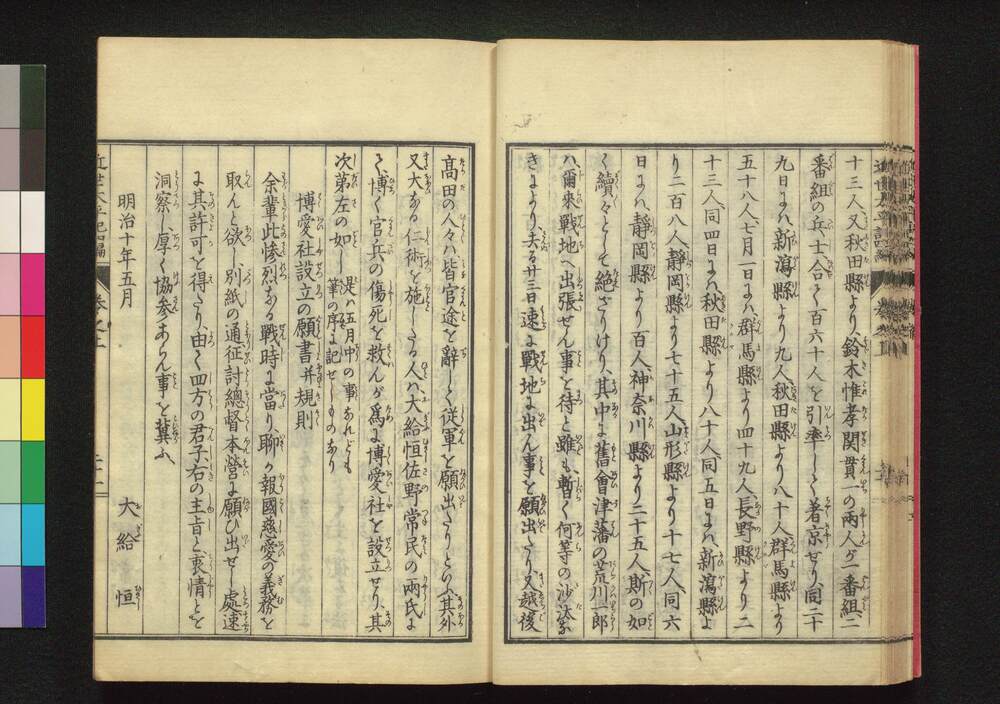 十三人又秋田縣より、鈴木惟孝関貫一の兩人が一番組、二
番組の兵士合せて百六十人を引率して著京せり、同二十
九日にハ、新瀉縣より九人秋田縣より八十人、群馬縣より
五十八人、七月一日にハ、群馬縣より四十九人、長野縣より二
十三人、同四日にハ、秋田縣より八十人、同五日にハ、新瀉縣よ
り二百八人、靜岡縣より七十五人、山形縣より十七人、同六
日にハ、靜岡縣より百人、神奈川縣より二十五人、斯の如
く續々として絶ざりけり、其中に舊會津藩の荒川二郎
ハ、爾來戰地へ出張せん事を待と雖も、暫く何等の沙汰な
きにより、去る廿三日速に戰地に出ん事を願出たり、又越後
高田の人々ハ皆官途を辭して従軍を願出たりといふ、其外
又大なる仁術を施したる人ハ、大給恒佐野常民の兩氏に
て博く官兵の傷死を救んが爲に博愛社を設立せり、其
次第左の如し 是ハ五月中の事なれども
筆の序に記せしものなり
博愛社設立の願書并規則
余輩此慘烈なる戰時に當り、聊か報國慈愛の義務を
取んと欲し、別紙の通征討總督本營に願ひ出せし處速
に其許可を得たり、由て四方の君子、右の主旨と、衷情とを
洞察し、厚く協参あらん事を冀ふ、
明治十年五月
大給 恒
近世太平記四編